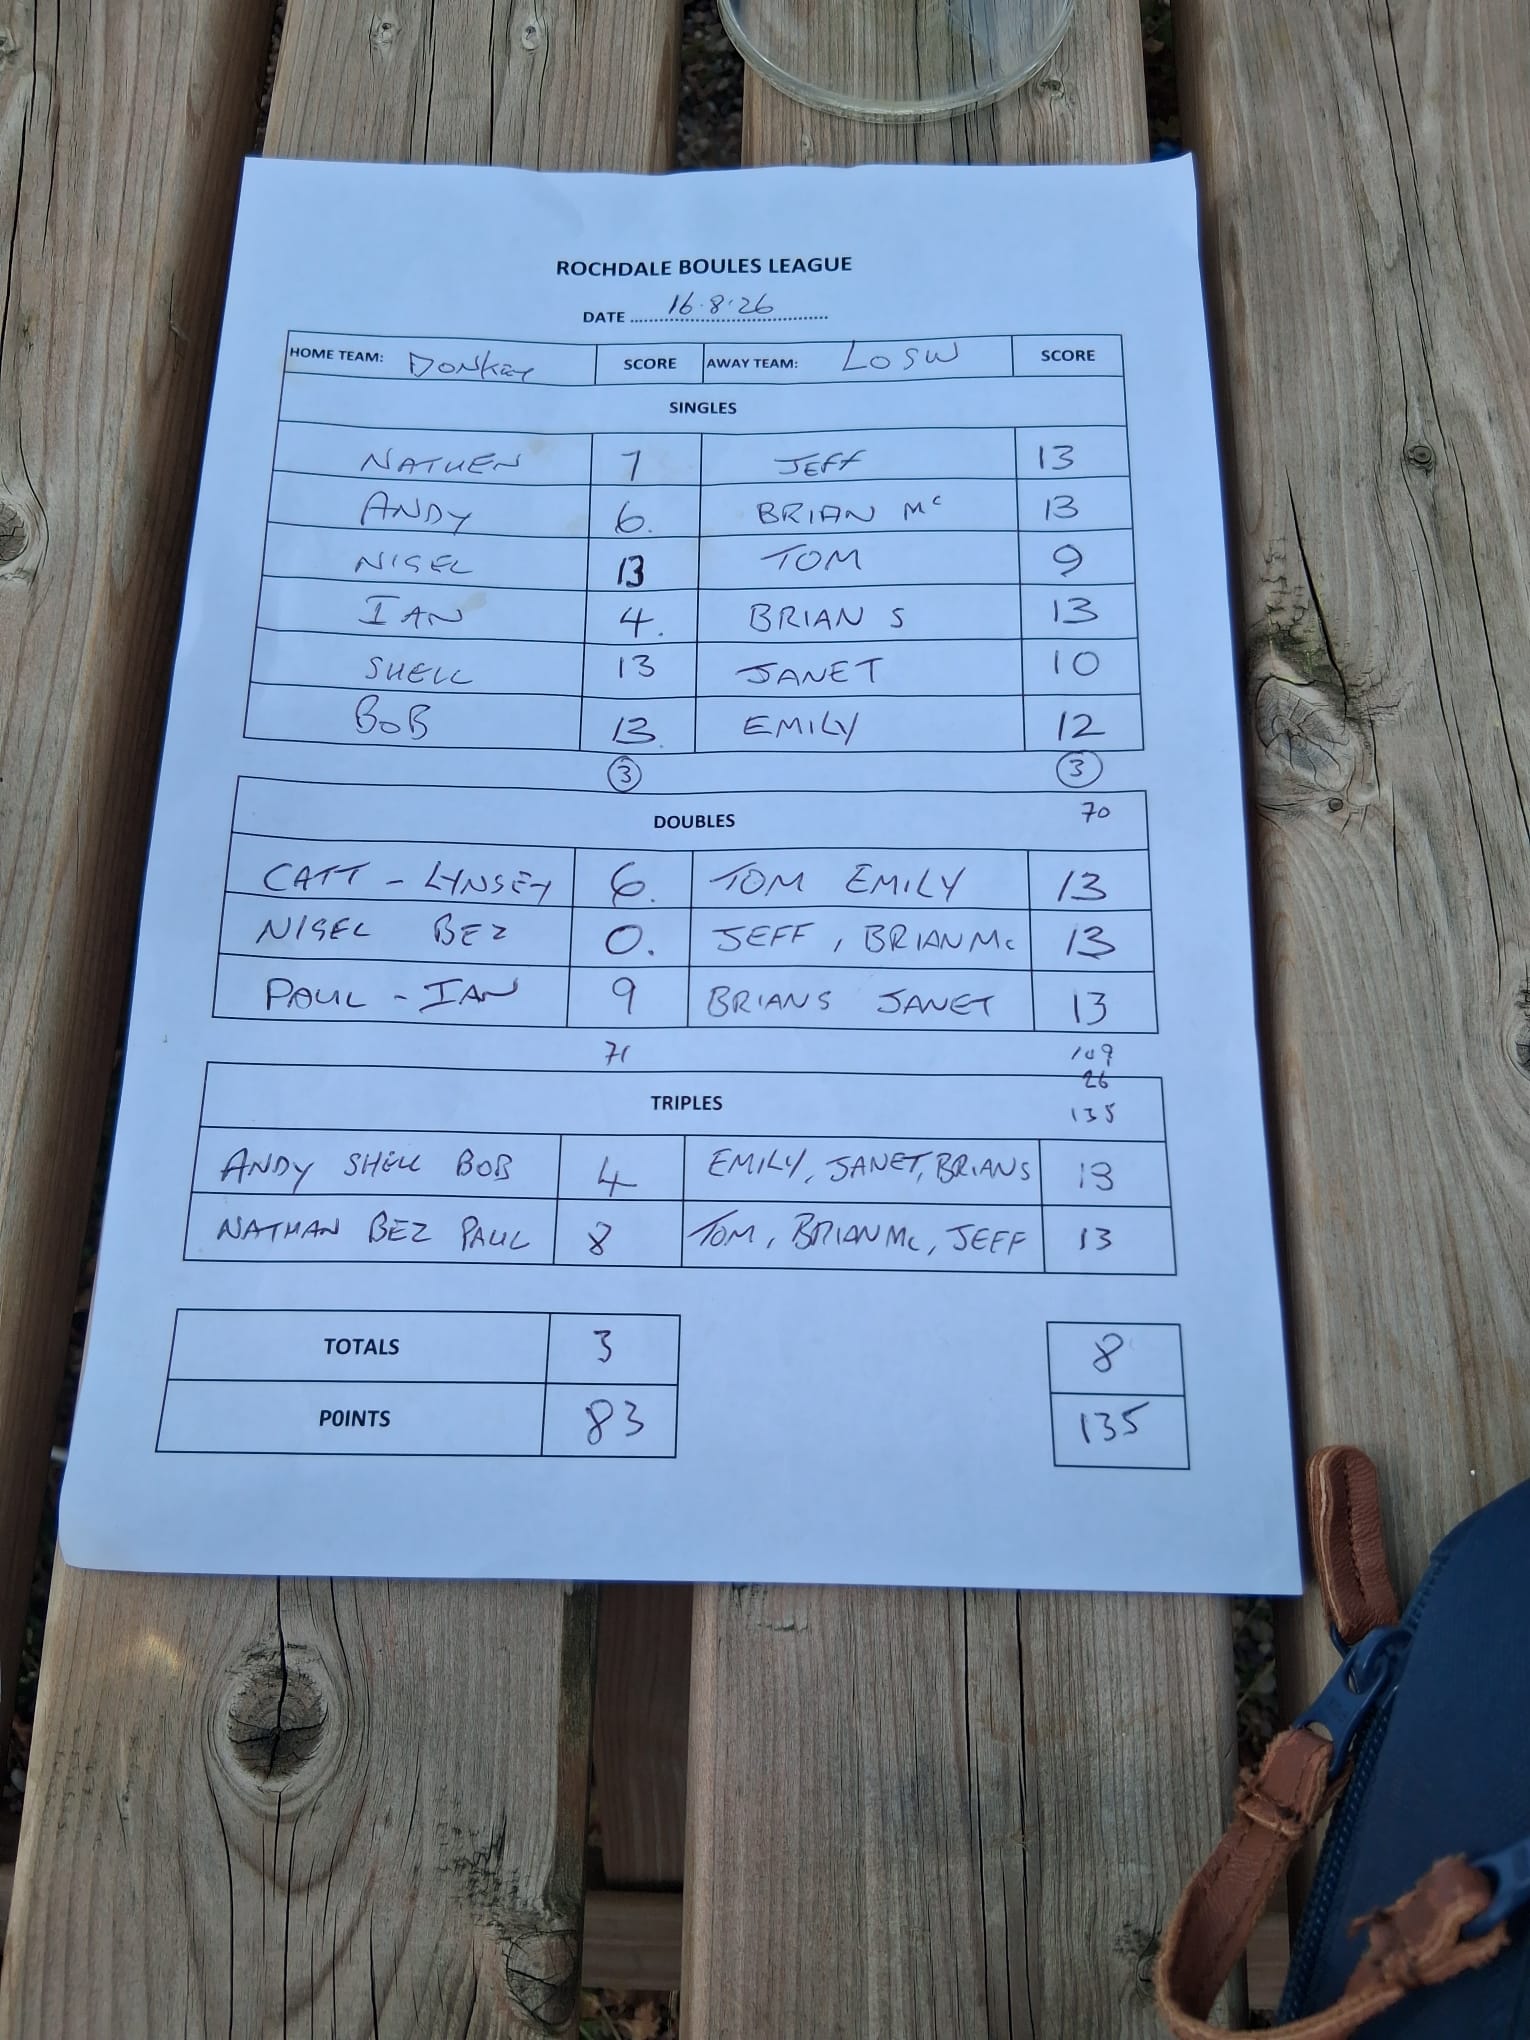 ROCHDALE BOULES LEAGUE
DATE 16.8.26
HOME TEAM: DONKEY SCORE AWAY TEAM: LOSW SCORE
SINGLES
NATHEN 7 JEFF 13
ANDY 6. BRIAN Mc 13
NIGEL 13 TOM 9
IAN 4. BRIAN S 13
SHELL 13 JANET 10
BOB 13. EMILY 12
3 3
70
DOUBLES
CATT - LYNSEY 6. TOM EMILY 13
NIGEL BEZ 0. JEFF, BRIAN Mc 13
PAUL - IAN 9 BRIAN S JANET 13
71 109
26
TRIPLES 135
ANDY SHELL BOB 4 EMILY, JANET, BRIAN S 13
NATHAN BEZ PAUL 8 TOM, BRIAN Mc, JEFF 13
TOTALS 3 8
POINTS 83 135